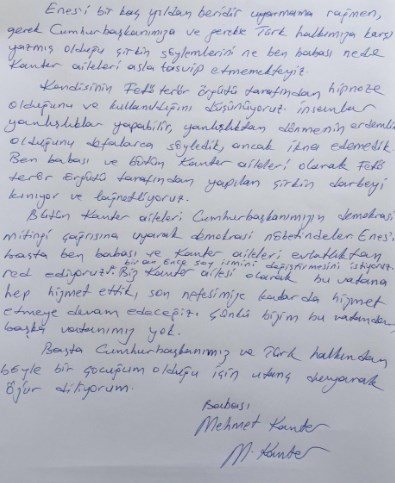 Enes'i bir kaç yıldan beridir uyarmama rağmen,
gerek Cumhurbaşkanımıza ve gerekse Türk halkımıza karşı
yazmış olduğu çirkin söylemlerini ne ben babası nede
Kanter aileleri asla tasvip etmemekteyiz.
Kendisinin Fetö terör örgütü tarafından hipnoze
olduğunu ve kullanıldığını düşünüyoruz. insanlar
yanlışlıklar yapabilir, yanlışlıktan dönmenin erdemlik
olduğunu defalarca söyledik, ancak ikna edemedik.
Ben babası ve bütün Kanter aileleri olarak Fetö
terör örgütü tarafından yapılan çirkin darbeyi
kınıyor ve lağnetliyoruz.
Bütün Kanter aileleri Cumhurbaşkanımızın demokrasi
mitingi çağrısına uyarak demokrasi nöbetindeler. Enes'i
başta ben babası ve Kanter aileleri evlatlıktan
bir an önce soy ismini değiştirmesini istiyoruz.
red ediyoruz. Biz Kanter ailesi olarak bu vatana
hep hizmet ettik, son nefesimize kadarda hizmet
etmeye devam edeceğiz. Çünkü bizim bu vatandan
başka vatanımız yok.
Başta Cumhurbaşkanımız ve Türk halkından
böyle bir çocuğum olduğu için utanç duyarak
özür diliyorum.
Babası
Mehmet Kanter
M. Kanter